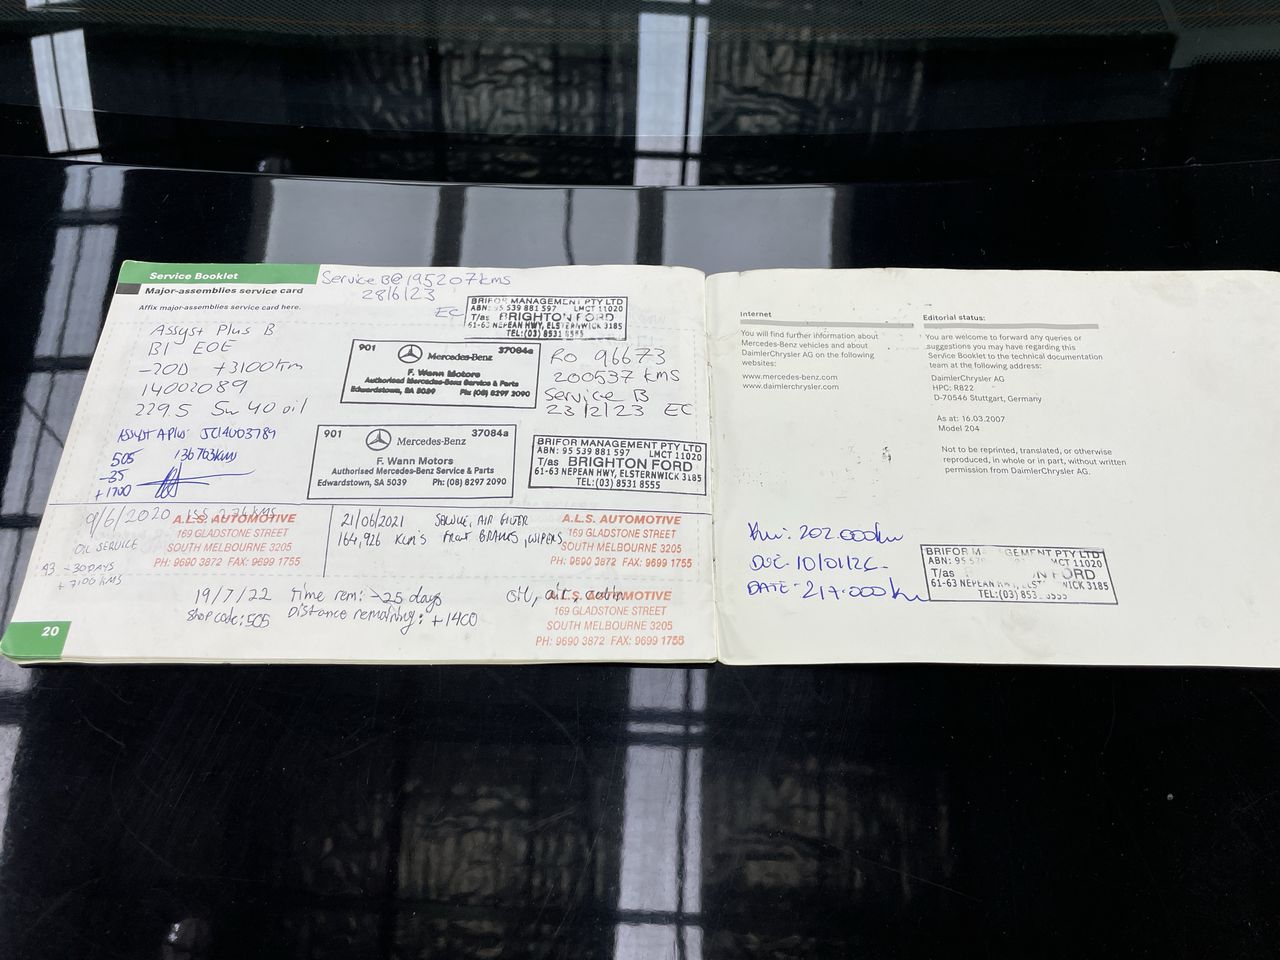 Service Booklet
Service B@195207kms
28/6/23
EC
Major-assemblies service card
Affix major-assemblies service card here.
BRIFOR MANAGEMENT PTY LTD
ABN: 95 539 881 597 LMCT 11020
T/as BRIGHTON FORD
61-63 NEPEAN HWY, ELSTERNWICK 3185
TEL:(03) 8531 8555
Assyst Plus B
B1 EOE
-20D +3100km
14002089
229.5 5w 40 oil
901 37084a
Mercedes-Benz
F. Wann Motors
Authorised Mercedes-Benz Service & Parts
Edwardstown, SA 5039 Ph: (08) 8297 2090
RO 96673
200537 kms
Service B
23/12/23 EC
Assyst A Plus JC14003789
505 136763kms
-35
+1700
901 37084a
Mercedes-Benz
F. Wann Motors
Authorised Mercedes-Benz Service & Parts
Edwardstown, SA 5039 Ph: (08) 8297 2090
BRIFOR MANAGEMENT PTY LTD
ABN: 95 539 881 597 LMCT 11020
T/as BRIGHTON FORD
61-63 NEPEAN HWY, ELSTERNWICK 3185
TEL:(03) 8531 8555
9/6/2020 kms
OIL SERVICE
A3 -30DAYS
+7100 KMS
A.L.S. AUTOMOTIVE
169 GLADSTONE STREET
SOUTH MELBOURNE 3205
PH: 9690 3872 FAX: 9699 1755
21/06/2021 SERVICE, AIR FILTER
164,926 KLM'S FRONT BRAKES, WIPERS
A.L.S. AUTOMOTIVE
169 GLADSTONE STREET
SOUTH MELBOURNE 3205
PH: 9690 3872 FAX: 9699 1755
19/7/22 time rem: -25 days oil, air, cabin
Shop code: 505 Distance remaining: +1400
A.L.S. AUTOMOTIVE
169 GLADSTONE STREET
SOUTH MELBOURNE 3205
PH: 9690 3872 FAX: 9699 1755
20
Internet
You will find further information about
Mercedes-Benz vehicles and about
DaimlerChrysler AG on the following
websites:
www.mercedes-benz.com
www.daimlerchrysler.com
Editorial status:
You are welcome to forward any queries or
suggestions you may have regarding this
Service Booklet to the technical documentation
team at the following address:
DaimlerChrysler AG
HPC: R822
D-70546 Stuttgart, Germany
As at: 16.03.2007
Model 204
Not to be reprinted, translated, or otherwise
reproduced, in whole or in part, without written
permission from DaimlerChrysler AG.
Km: 202.000km
DATE - 217.000km
BRIFOR M GEMENT PTY LTD
ABN: 95 5 LMCT 11020
T/as N FORD
61-63 NEPEAN HWY, WICK 3185
TEL:(03) 853 5555